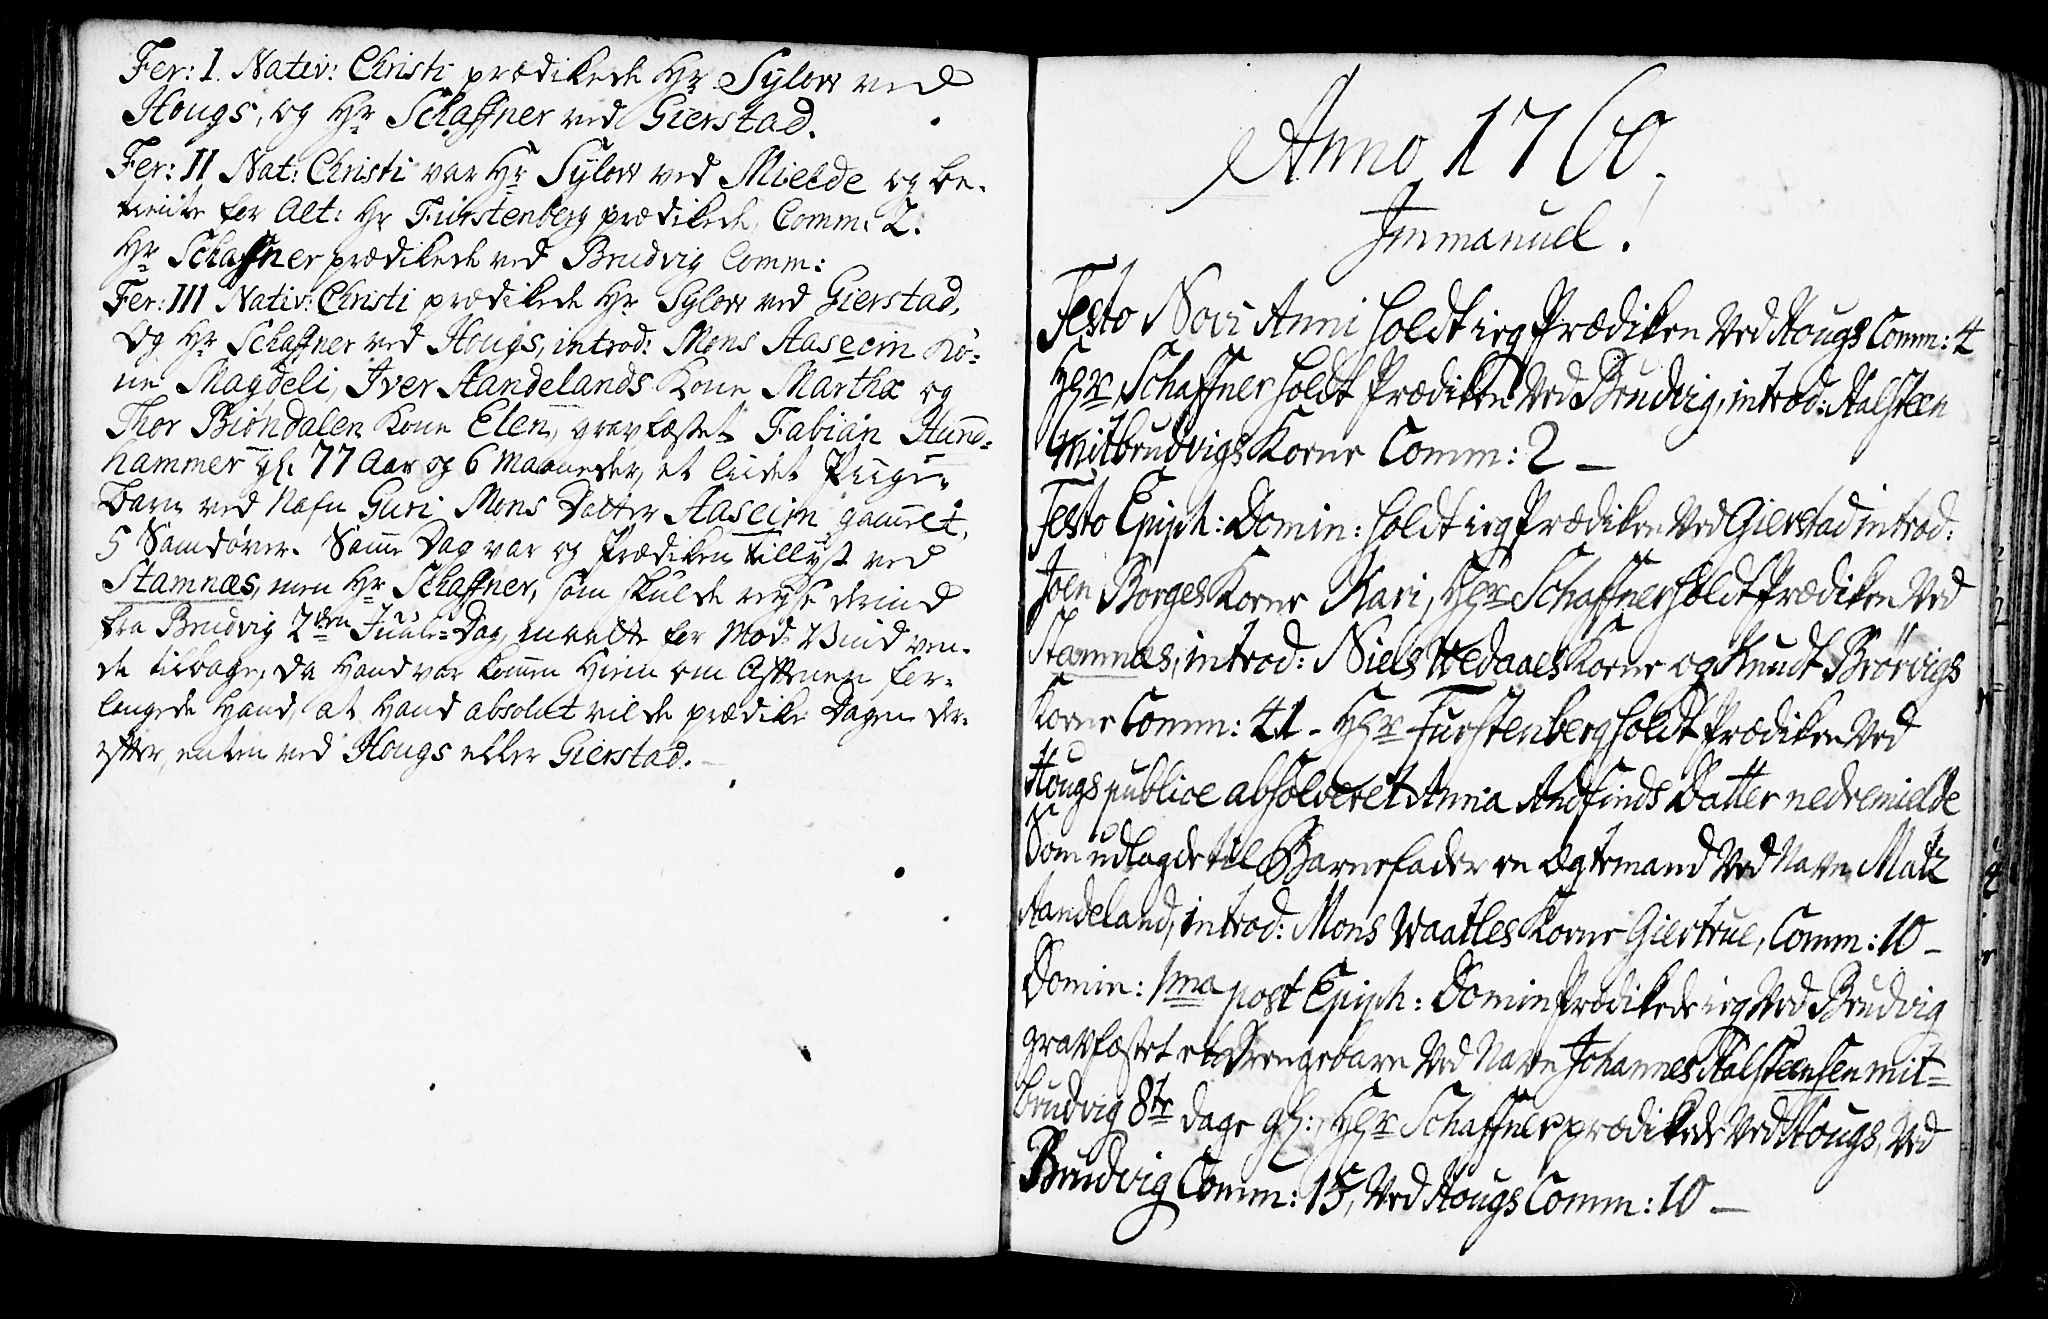 Fer: I. Nativ: Christi prædikede Hr Sylow ved
Hougs, og Hr Schaffner ved Gierstad.
Fer: II Nat: Christi var Hr Sylow ved Mielde og be-
tiente for Alt: Hr Fürstenberg prædikede, Comm: 2.
Hr Schaffner prædikede ved Brudvig Comm:
Fer: III Nativ: Christi prædikede Hr Sylow ved Gierstad,
Og Hr Schaffner ved Hougs, introd: Mons Aaseim Ko-
ne Magdeli, Iver Aandelands Kone Martha og
Thor Biôndalen Kone Elen, gravfæstet Fabian Hund-
hammer gl: 77 Aar og 6 Maaneder, et lidet Pige-
barn ved Nafn Guri Mons Datter Aaseim gamelt,
5 Samdôver. Same Dag var og Prædiken tillyst ved
Stamnæs, men Hr Schaffner, som skulde reyse derind
fra Brudvig 2den Juule-Dag, maatte for Mod-Vind ven-
de tilbage, da Hand var komen Hiem om Aftenen for-
langede Hand, at Hand absolut vilde prædike Dagen der-
efter, enten ved Hougs eller Gierstad.
Anno 1760
Immanuel!
Festo Novi Anni holdt ieg Prædiken Ved Hougs Comm: 4
Hr Schaffner holdt Prædiken Ved Brudvig, introd: Halsteen
Mitbrudvigs Kone Comm: 2 —
Festo Epiph: Domin: holdt ieg Prædiken Ved Gierstad introd:
Joen Borges Kone Kari, Hr Schaffner holdt Prædiken Ved
Stamnæs, introd: Niels Wedaaes Kone og Knudt Brörvigs
Kone Comm: 41 - Hr Furstenberg holdt Prædiken Ved
Hougs publice absolveret Anna Andfinds Datter nedremielde
Som udlagde til Barnefader en Ægtemand Ved Navn Matz
Aandeland, introd: Mons Waatles Kone Giertrue, Comm: 10 -
Domin: 1ma post Epiph: Domin Prædikede ieg Ved Brudvig
gravfæstet et Drengebarn Ved Navn Johannes Halsteensen mit-
brudvig 8te dage gl:, Hr Schaffner prædikede Ved Hougs, Ved
Brudvig Comm: 15, Ved Hougs Comm: 10 —